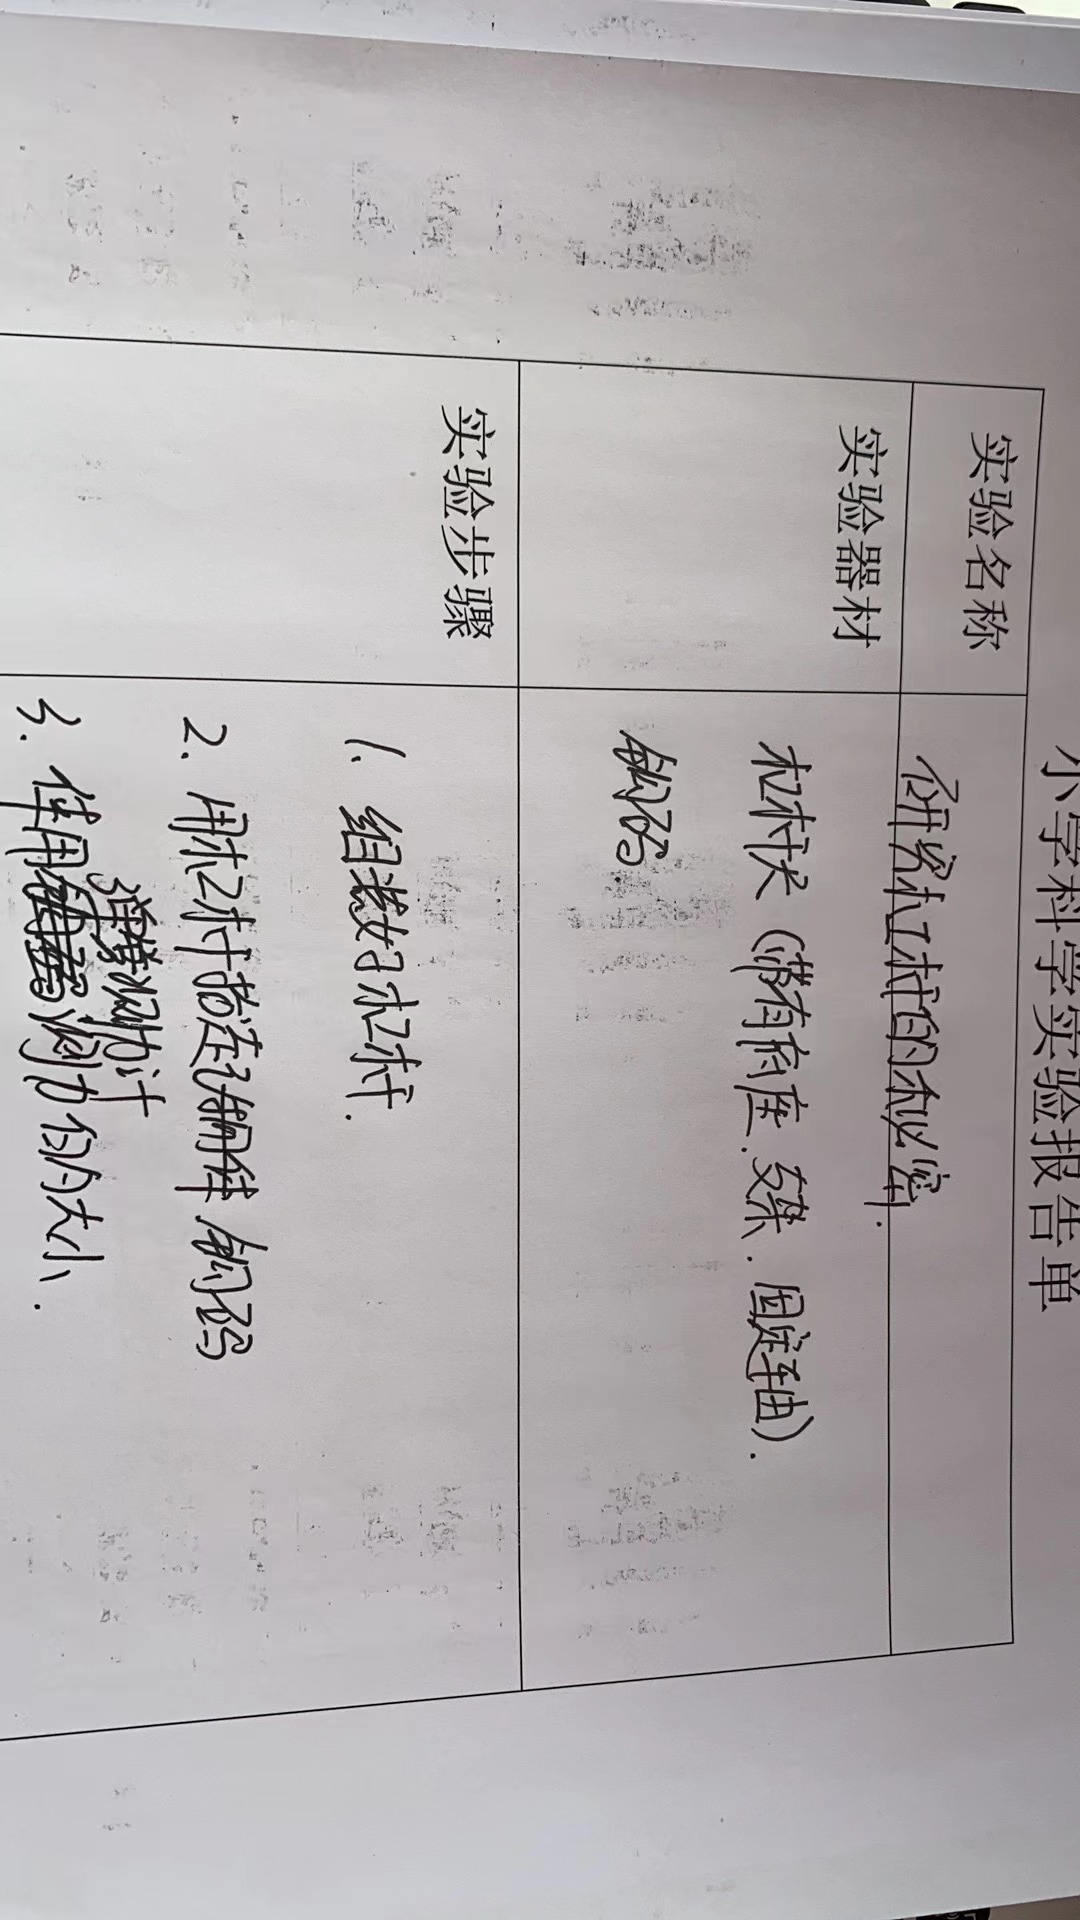 小学科学实验报告单
实验名称
研究杠杆的秘密.
实验器材
杠杆尺（带有底座.支架.固定轴）.
钩码.
实验步骤
1. 组装好杠杆.
2. 用杠杆抬连 钩码
弹簧测力计
3. 使用测力的大小.